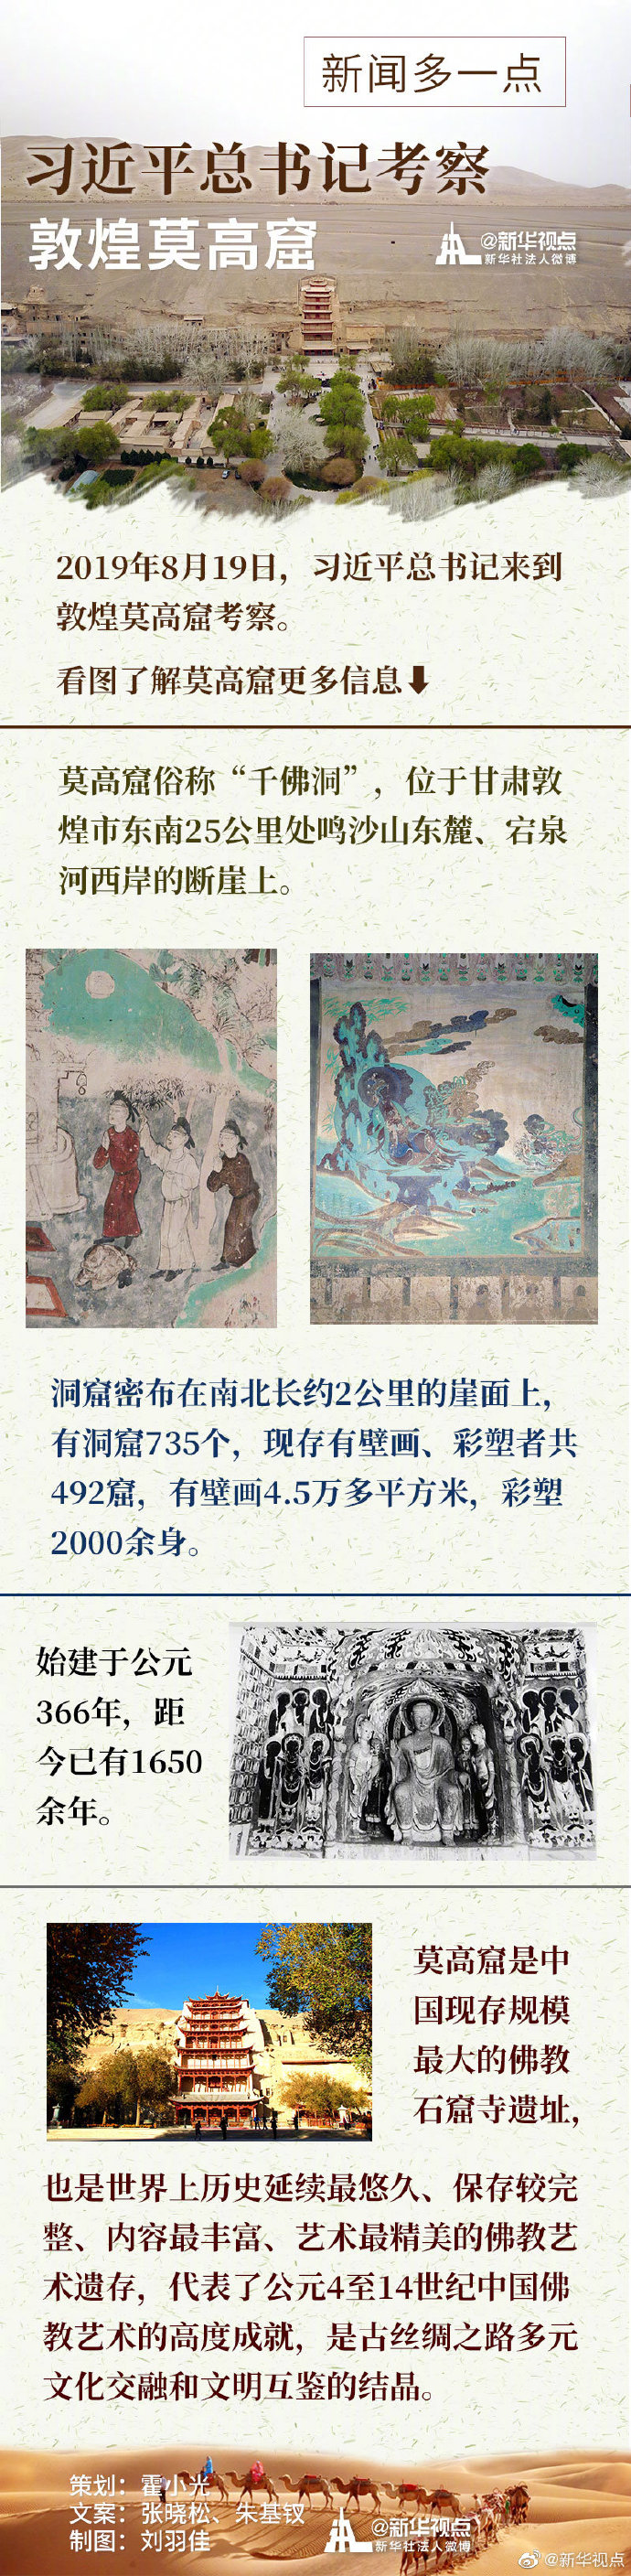 新闻多一点
习近平总书记考察
敦煌莫高窟
@新华视点
新华社法人微博
2019年8月19日，习近平总书记来到
敦煌莫高窟考察。
看图了解莫高窟更多信息⬇
莫高窟俗称“千佛洞”，位于甘肃敦
煌市东南25公里处鸣沙山东麓、宕泉
河西岸的断崖上。
洞窟密布在南北长约2公里的崖面上，
有洞窟735个，现存有壁画、彩塑者共
492窟，有壁画4.5万多平方米，彩塑
2000余身。
始建于公元
366年，距
今已有1650
余年。
莫高窟是中
国现存规模
最大的佛教
石窟寺遗址，
也是世界上历史延续最悠久、保存较完
整、内容最丰富、艺术最精美的佛教艺
术遗存，代表了公元4至14世纪中国佛
教艺术的高度成就，是古丝绸之路多元
文化交融和文明互鉴的结晶。
策划：霍小光
文案：张晓松、朱基钗
制图：刘羽佳
@新华视点
新华社法人微博
@新华视点